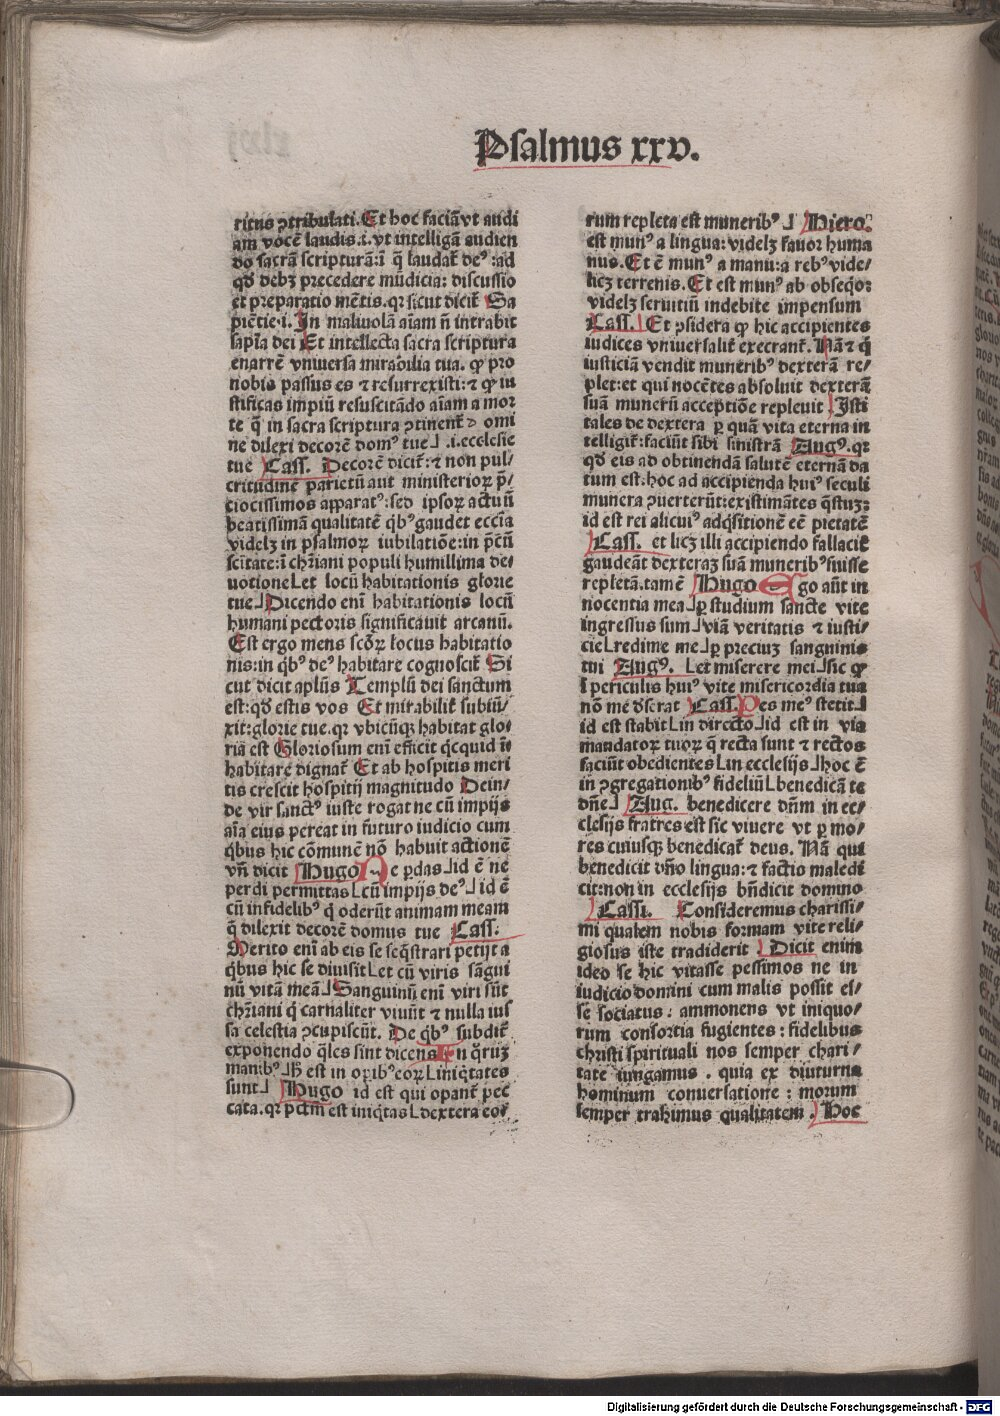 Psalmus xxv.
ritus ꝯtribulati. Et hoc faciā vt audi
am vocē laudis .i. vt intelligā audien
do sacrā scripturā: ī q̄ laudat᷑ deꝰ: ad
qd̓ debꝫ precedere mūdicia: discussio
et preparatio mētis. qꝛ sicut dicit᷑ Sa
piētie .i. In maliuolā aīam nō intrabit
sapīa dei Et intellecta sacra scriptura
enarrē vniuersa mirabilia tua. ꝙ pro
nobis passus es ⁊ resurrexisti: ⁊ ꝙ iu
stificas impiū resuscitādo aīam a mor
te q̄ in sacra scriptura ꝯtinent᷑ domi
ne dilexi decorē domꝰ tue⅃ .i. ecclesie
tue Cass. Decorē dicit᷑: ⁊ non pul⸗
critudine parietū aut ministerioꝝ p̄⸗
ciocissimos apparatꝰ: sed ipsoꝝ actuū
beatissimā qualitatē qͥbꝰ gaudet eccīa
videlꝫ in psalmoꝝ iubilatiōe: in p̄cū
scitate: ī chr̄iani populi humillima de⸗
uotione L et locū habitationis glorie
tue⅃ Dicendo enī habitationis locū
humani pectoris significauit arcanū.
Est ergo mens scōꝝ locus habitatio
nis: in qͥbꝰ deꝰ habitare cognoscit᷑ Si
cut dicit apl̄us Templū dei sanctum
est: qd̓ estis vos Et mirabilit᷑ subiū⸗
xit: glorie tue. qꝛ vbicūqꝫ habitat glo⸗
riā est Gloriosum enī efficit qͥcquid ī
habitare dignat᷑ Et ab hospitis meri
tis crescit hospitij magnitudo Dein⸗
de vir sanctꝰ iuste rogat ne cū impijs
aīa eius pereat in futuro iudicio cum
qͥbus hic cōmunē nō habuit actionē
vn̄ dicit Hugo Ne ꝑdas⅃ id ē ne
perdi permittas L cū impijs deꝰ⅃ id ē
cū infidelibꝰ qͥ oderūt animam meam
q̄ dilexit decorē domus tue Cass.
Merito enī ab eis se seqͥstrari petijt a
qͥbus hic se diuisit L et cū viris sāgui
nū vitā meā⅃ Sanguinū enī viri sūt
chr̄iani qͥ carnaliter viuūt ⁊ nulla ius
sa celestia ꝯcupiscūt. De qͥbꝰ subdit᷑
exponendo qͣles sint dicens In qͦruꝫ
manibꝰ⅃ h̄ est in oꝑibꝰ eoꝝ L iniqͥtates
sunt⅃ Hugo id est qui opant᷑ pec
cata. qꝛ pctm̄ est iniqͥtas L dextera eo⸗
rum repleta est muneribꝰ⅃ Hiero.
est munꝰ a lingua: videlꝫ fauor huma
nus. Et ē munꝰ a manu: a rebꝰ vide⸗
licꝫ terrenis. Et est munꝰ ab obseqͦ:
videlꝫ seruitiū indebite impensum
Cass. Et ꝯsidera ꝙ hic accipientes
iudices vniuersalit᷑ execrant᷑. Nā ⁊ qͥ
iusticiā vendit muneribꝰ dexterā re⸗
plet: et qui nocētes absoluit dexterā
suā munerū acceptiōe repleuit. Isti
tales de dextera ꝑ quā vita eterna in
telligit᷑: faciūt sibi sinistrā Augꝰ. qꝛ
qd̓ eis ad obtinendā salutē eternā da
tum est: hoc ad accipienda huiꝰ seculi
munera ꝯuerterūt: existimātes q̄stuꝫ:
id est rei alicuiꝰ adqͥsitionē eē pietatē
Cass. et licꝫ illi accipiendo fallacit᷑
gaudeāt dexteraꝫ suā muneribꝰ fuisse
repletā. tamē Hugo Ego aūt in
nocentia mea⅃ ꝑ studium sancte vite
ingressus sum⅃ viā veritatis ⁊ iusti⸗
cie L redime me⅃ ꝑ preciuꝫ sanguinis
tui Augꝰ. L et miserere mei⅃ sic ꝙ
ī periculis huiꝰ vite misericordia tua
nō me d̓serat Cass. Pes meꝰ stetit⅃
id est stabit L in directo⅃ id est in via
mandatoꝝ tuoꝝ q̄ recta sunt ⁊ rectos
faciūt obedientes L in ecclesijs⅃ hoc ē
in ꝯgregationibꝰ fideliū L benedicā te
dn̄e⅃ Aug. benedicere dn̄m in ec⸗
clesijs fratres est sic viuere vt ꝑ mo⸗
res cuiusqꝫ benedicat᷑ deus. Nā qui
benedicit dn̄o lingua: ⁊ factio maledi
cit: non in ecclesijs bn̄dicit domino
Cassi. Consideremus charissi⸗
mi qualem nobis formam vite reli⸗
giosus iste tradiderit. Dicit enim
ideo se hic vitasse pessimos ne in
iudicio domini cum malis possit es⸗
se sociatus: ammonens vt iniquo⸗
rum consortia fugientes: fidelibus
christi spirituali nos semper chari⸗
tate iungamus. quia ex diuturna
hominum conuersatione: morum
semper trahimus qualitatem. Hoc
Digitalisierung gefördert durch die Deutsche Forschungsgemeinschaft - DFG